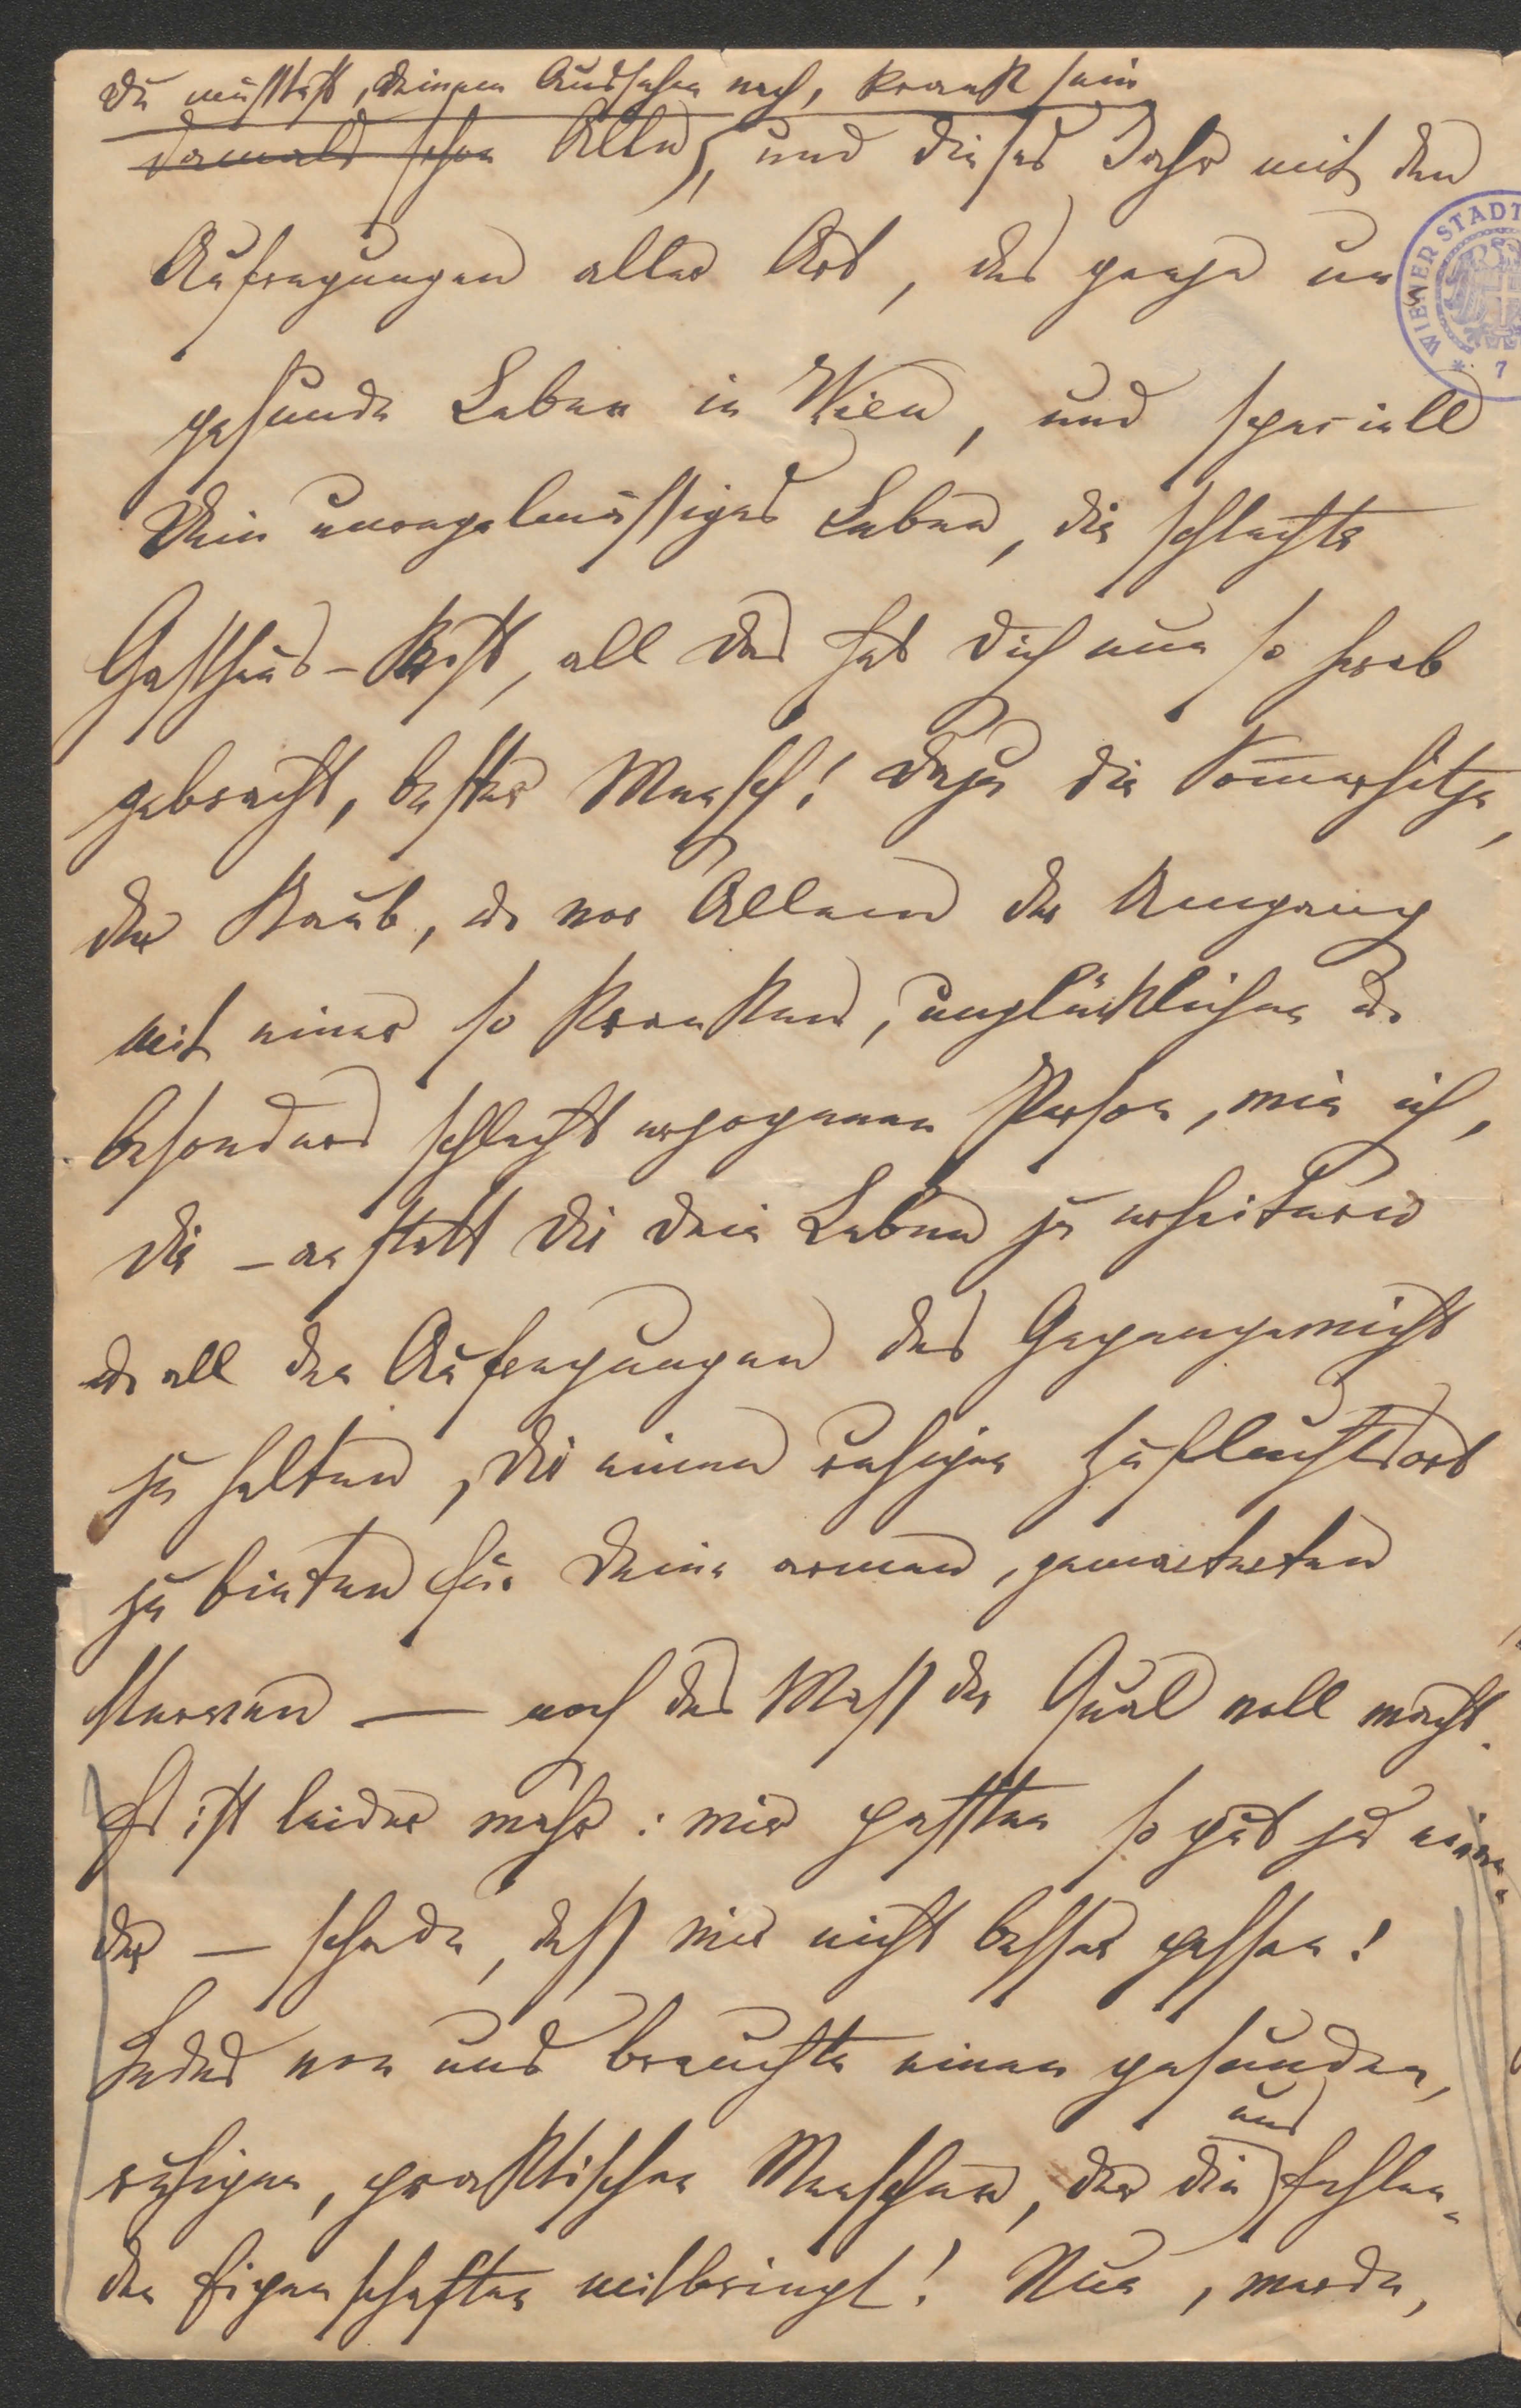 Du müsstest, Deinem Aussehen nach, krank sein
damals schon Alles, und dieses Jahr mit den
Aufregungen aller Art, das ganze un
gesunde Leben in Wien, und speciell
Dein unregelmässiges Leben, die schlechte
Gasthaus-Kost, all das hat Dich nun so herab
gebracht, bester Mensch! Dazu die Sommerhitze,
der Staub, u. vor Allem der Umgang
mit einer so kranken, unglücklichen u.
besonders schlecht erzogenen Person, wie ich,
die – anstatt Dir Dein Leben zu erheitern
u. all den Aufregungen das Gegengewicht
zu halten, Dir einen ruhigen Zufluchtsort
zu bieten für Deine armen, gemarterten
Nerven — noch das Mass der Qual voll macht.
Es ist leider wahr: wir passten so gut zu einan-
der — schade, dass wir nicht besser passen!
Jedes von uns brauchte einen gesunden,
ruhigen, praktischen Menschen, der die uns fehlen-
den Eigenschaften mitbringt! Nun, werde,
WIENER STADT
7